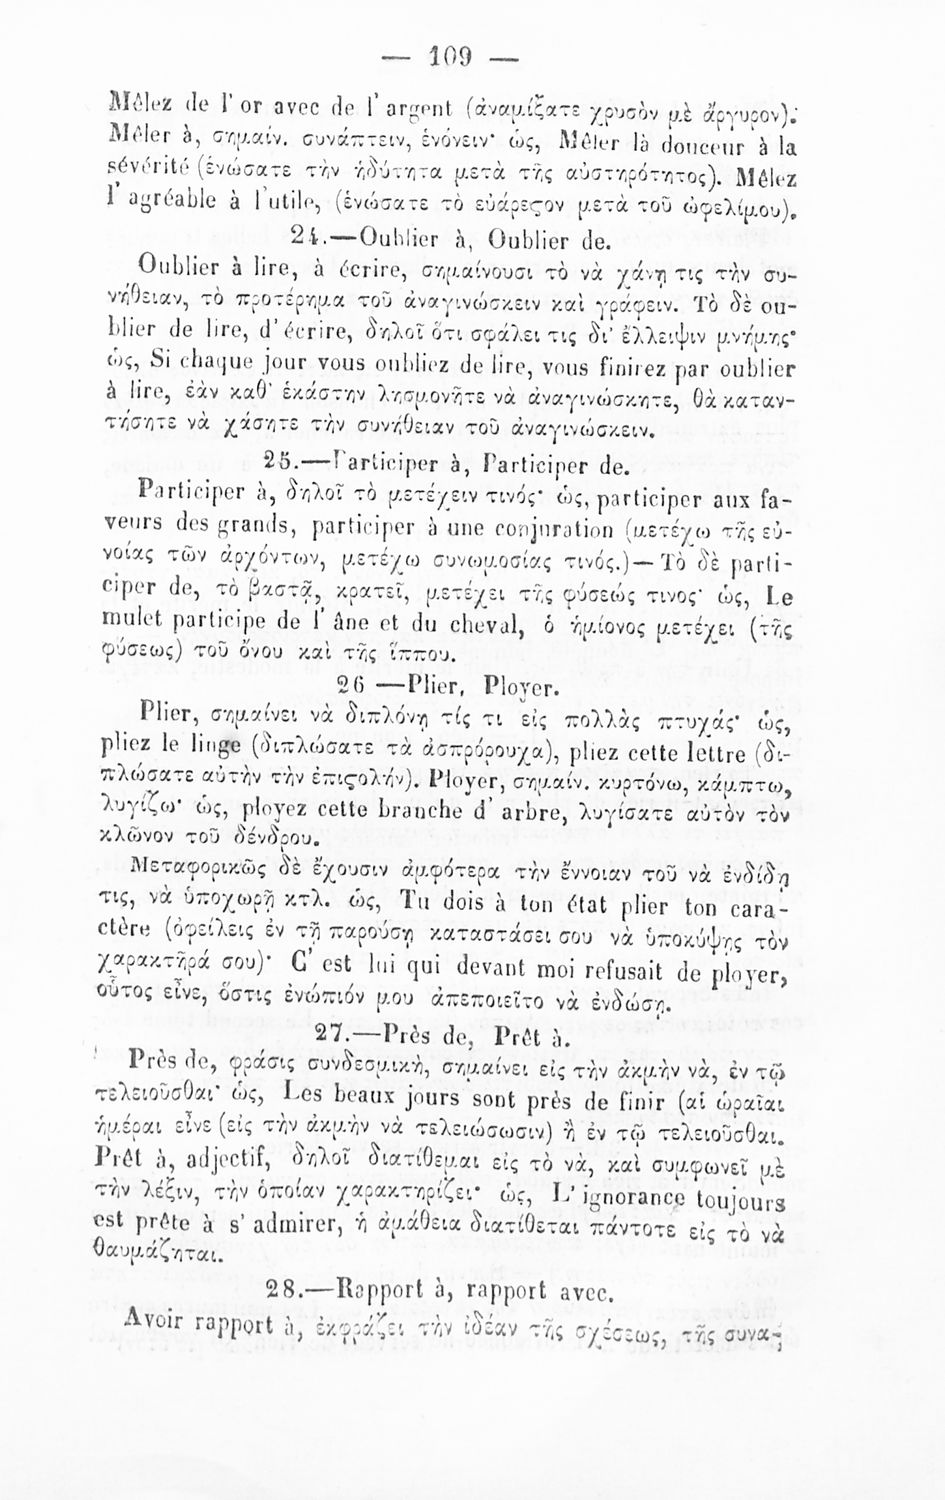 — 109 —
Mêlez de l' or avec de l' argent (ἀναμίξατε χρυσὸν μὲ ἄργυρον).
Mêler à, σημαίν. συνάπτειν, ἑνόνειν· ὡς, Mêler là douceur à la
sévérité (ἑνώσατε τὴν ἡδύτητα μετὰ τῆς αὐστηρότητος). Mêlez
l' agréable à l'utile, (ἑνώσατε τὸ εὐάρεϛον μετὰ τοῦ ὠφελίμου).
24.—Oublier à, Oublier de.
Oublier à lire, à écrire, σημαίνουσι τὸ νὰ χάνῃ τις τὴν συ-
νήθειαν, τὸ προτέρημα τοῦ ἀναγινώσκειν καὶ γράφειν. Τὸ δὲ ou-
blier de lire, d' écrire, δηλοῖ ὅτι σφάλει τις δι' ἔλλειψιν μνήμης·
ὡς, Si chaque jour vous oubliez de lire, vous finirez par oublier
à lire, ἐὰν καθ' ἑκάστην λησμονῆτε νὰ ἀναγινώσκητε, θὰ καταν-
τήσητε νὰ χάσητε τὴν συνήθειαν τοῦ ἀναγινώσκειν.
25.—Participer à, Participer de.
Participer à, δηλοῖ τὸ μετέχειν τινός· ὡς, participer aux fa-
veurs des grands, participer à une conjuration (μετέχω τῆς εὐ-
νοίας τῶν ἀρχόντων, μετέχω συνωμοσίας τινός.)— Τὸ δὲ parti-
ciper de, τὸ βαστᾷ, κρατεῖ, μετέχει τῆς φύσεώς τινος· ὡς, Le
mulet participe de l' âne et du cheval, ὁ ἡμίονος μετέχει (τῆς
φύσεως) τοῦ ὄνου καὶ τῆς ἵππου.
26 —Plier, Ployer.
Plier, σημαίνει νὰ διπλόνῃ τίς τι εἰς πολλὰς πτυχάς· ὡς,
pliez le linge (διπλώσατε τὰ ἀσπρόρουχα), pliez cette lettre (δι-
πλώσατε αὐτὴν τὴν ἐπιϛολήν). Ployer, σημαίν. κυρτόνω, κάμπτω,
λυγίζω· ὡς, ployez cette branche d' arbre, λυγίσατε αὐτὸν τὸν
κλῶνον τοῦ δένδρου.
Μεταφορικῶς δὲ ἔχουσιν ἀμφότερα τὴν ἔννοιαν τοῦ νὰ ἐνδίδῃ
τις, νὰ ὑποχωρῇ κτλ. ὡς, Tu dois à ton état plier ton cara-
ctère (ὀφείλεις ἐν τῇ παρούσῃ καταστάσει σου νὰ ὑποκύψῃς τὸν
χαρακτῆρά σου)· C' est lui qui devant moi refusait de ployer,
οὗτος εἶνε, ὅστις ἐνώπιόν μου ἀπεποιεῖτο νὰ ἐνδώσῃ.
27.—Près de, Prêt à.
Près de, φράσις συνδεσμικὴ, σημαίνει εἰς τὴν ἀκμὴν νὰ, ἐν τῷ
τελειοῦσθαι· ὡς, Les beaux jours sont près de finir (αἱ ὡραῖαι
ἡμέραι εἶνε (εἰς τὴν ἀκμὴν νὰ τελειώσωσιν) ἢ ἐν τῷ τελειοῦσθαι.
Prêt à, adjectif, δηλοῖ διατίθεμαι εἰς τὸ νὰ, καὶ συμφωνεῖ μὲ
τὴν λέξιν, τὴν ὁποίαν χαρακτηρίζει· ὡς, L' ignorance toujours
est prête à s' admirer, ἡ ἀμάθεια διατίθεται πάντοτε εἰς τὸ νὰ
θαυμάζηται.
28.—Rapport à, rapport avec.
Avoir rapport à, ἐκφράζει τὴν ἰδέαν τῆς σχέσεως, τῆς συνα-